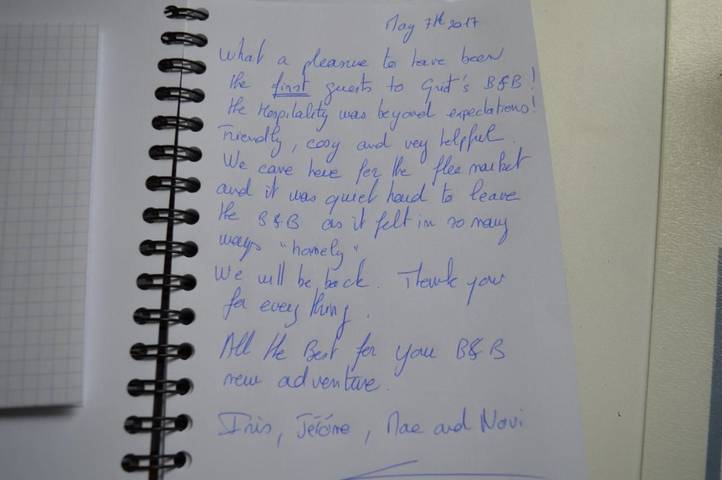 May 7th 2017
What a pleasure to have been
the first guests to Grit's B&B!
the Hospitality was beyond expectations!
Friendly, cosy and very helpful.
We came here for the flea market
and it was quiet hard to leave
the B&B as it felt in so many
ways "homely"
We will be back. Thank you
for every thing.
All the Best for your B&B
new adventure.
Iris, Jérôme, Mae and Novi